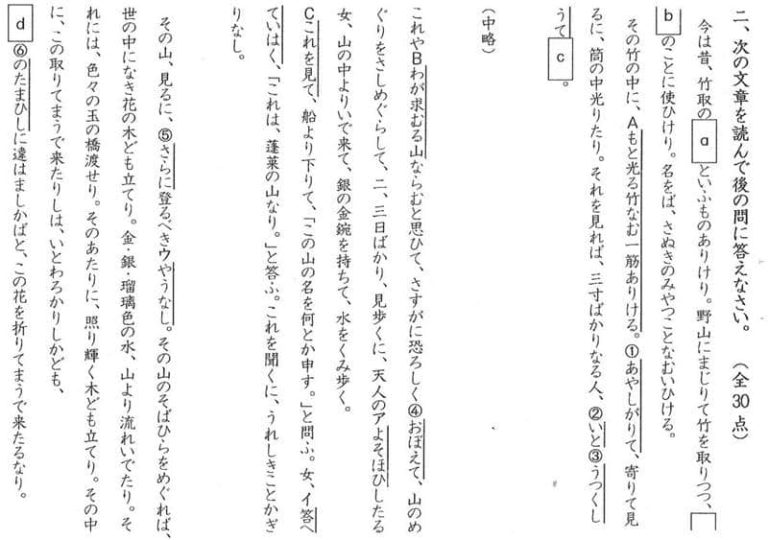 二、次の文章を読んで後の問に答えなさい。　（全30点）
今は昔、竹取の a といふものありけり。野山にまじりて竹を取りつつ、
b のことに使ひけり。名をば、さぬきのみやつことなむいひける。
その竹の中に、Aもと光る竹なむ一筋ありける。①あやしがりて、寄りて見
るに、筒の中光りたり。それを見れば、三寸ばかりなる人、②いと③うつくし
うて c 。
（中略）
これやBわが求むる山ならむと思ひて、さすがに恐ろしく④おぼえて、山のめ
ぐりをさしめぐらして、二、三日ばかり、見歩くに、天人のアよそほひしたる
女、山の中よりいで来て、銀の金鋺を持ちて、水をくみ歩く。
Cこれを見て、船より下りて、「この山の名を何とか申す。」と問ふ。女、イ答へ
ていはく、「これは、蓬萊の山なり。」と答ふ。これを聞くに、うれしきことかぎ
りなし。
その山、見るに、⑤さらに登るべきウやうなし。その山のそばひらをめぐれば、
世の中になき花の木ども立てり。金・銀・瑠璃色の水、山より流れいでたり。そ
れには、色々の玉の橋渡せり。そのあたりに、照り輝く木ども立てり。その中
に、この取りてまうで来たりしは、いとわろかりしかども、
d ⑥のたまひしに違はましかばと、この花を折りてまうで来たるなり。